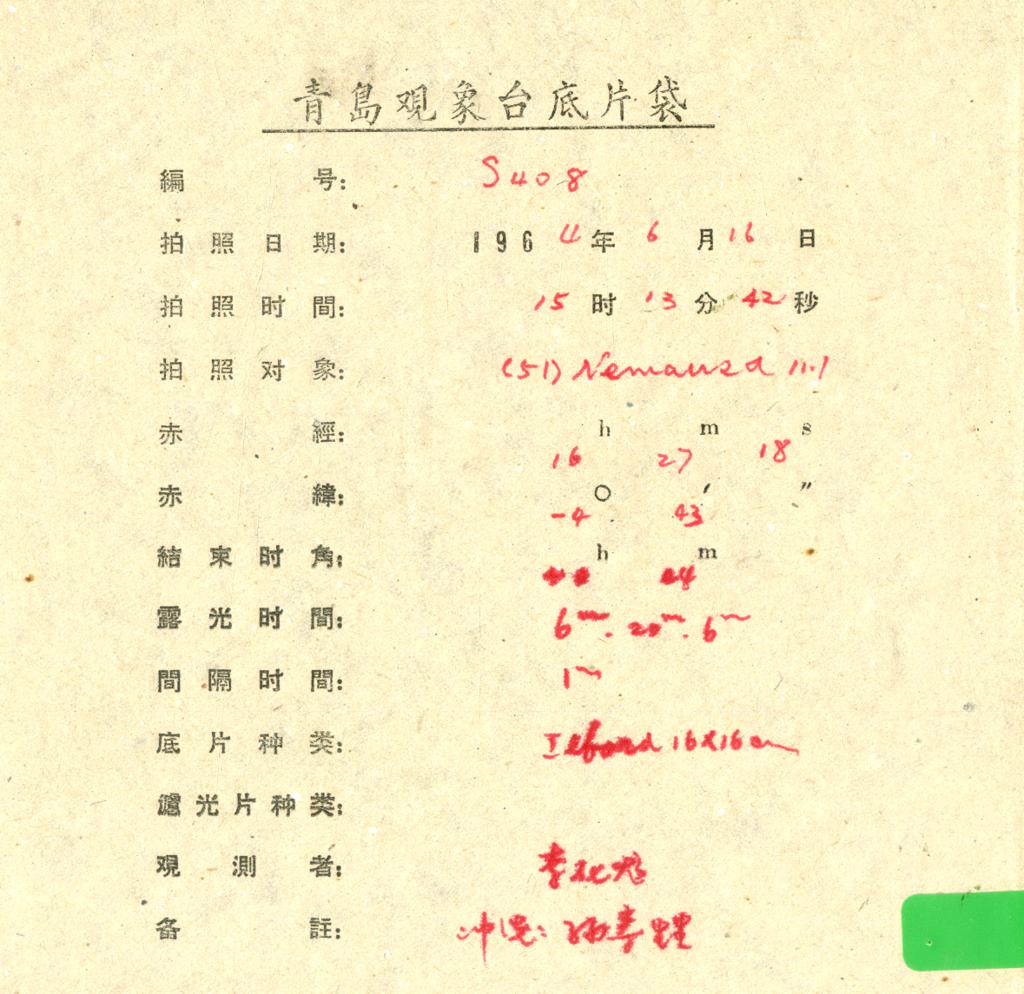 青島观象台底片袋
編号: S408
拍照日期: 1964年6月16日
拍照时間: 15时13分42秒
拍照对象: (51) Nemausa 11.1
赤經: h m s
16 27 18
赤緯: ○ ′ ″
-4 43
結束时角: h m
24
露光时間: 6m. 20m. 6m
間隔时間: 1m
底片种类: Ilford 16x16cm
濾光片种类:
观測者: 李
备註: 冲洗: